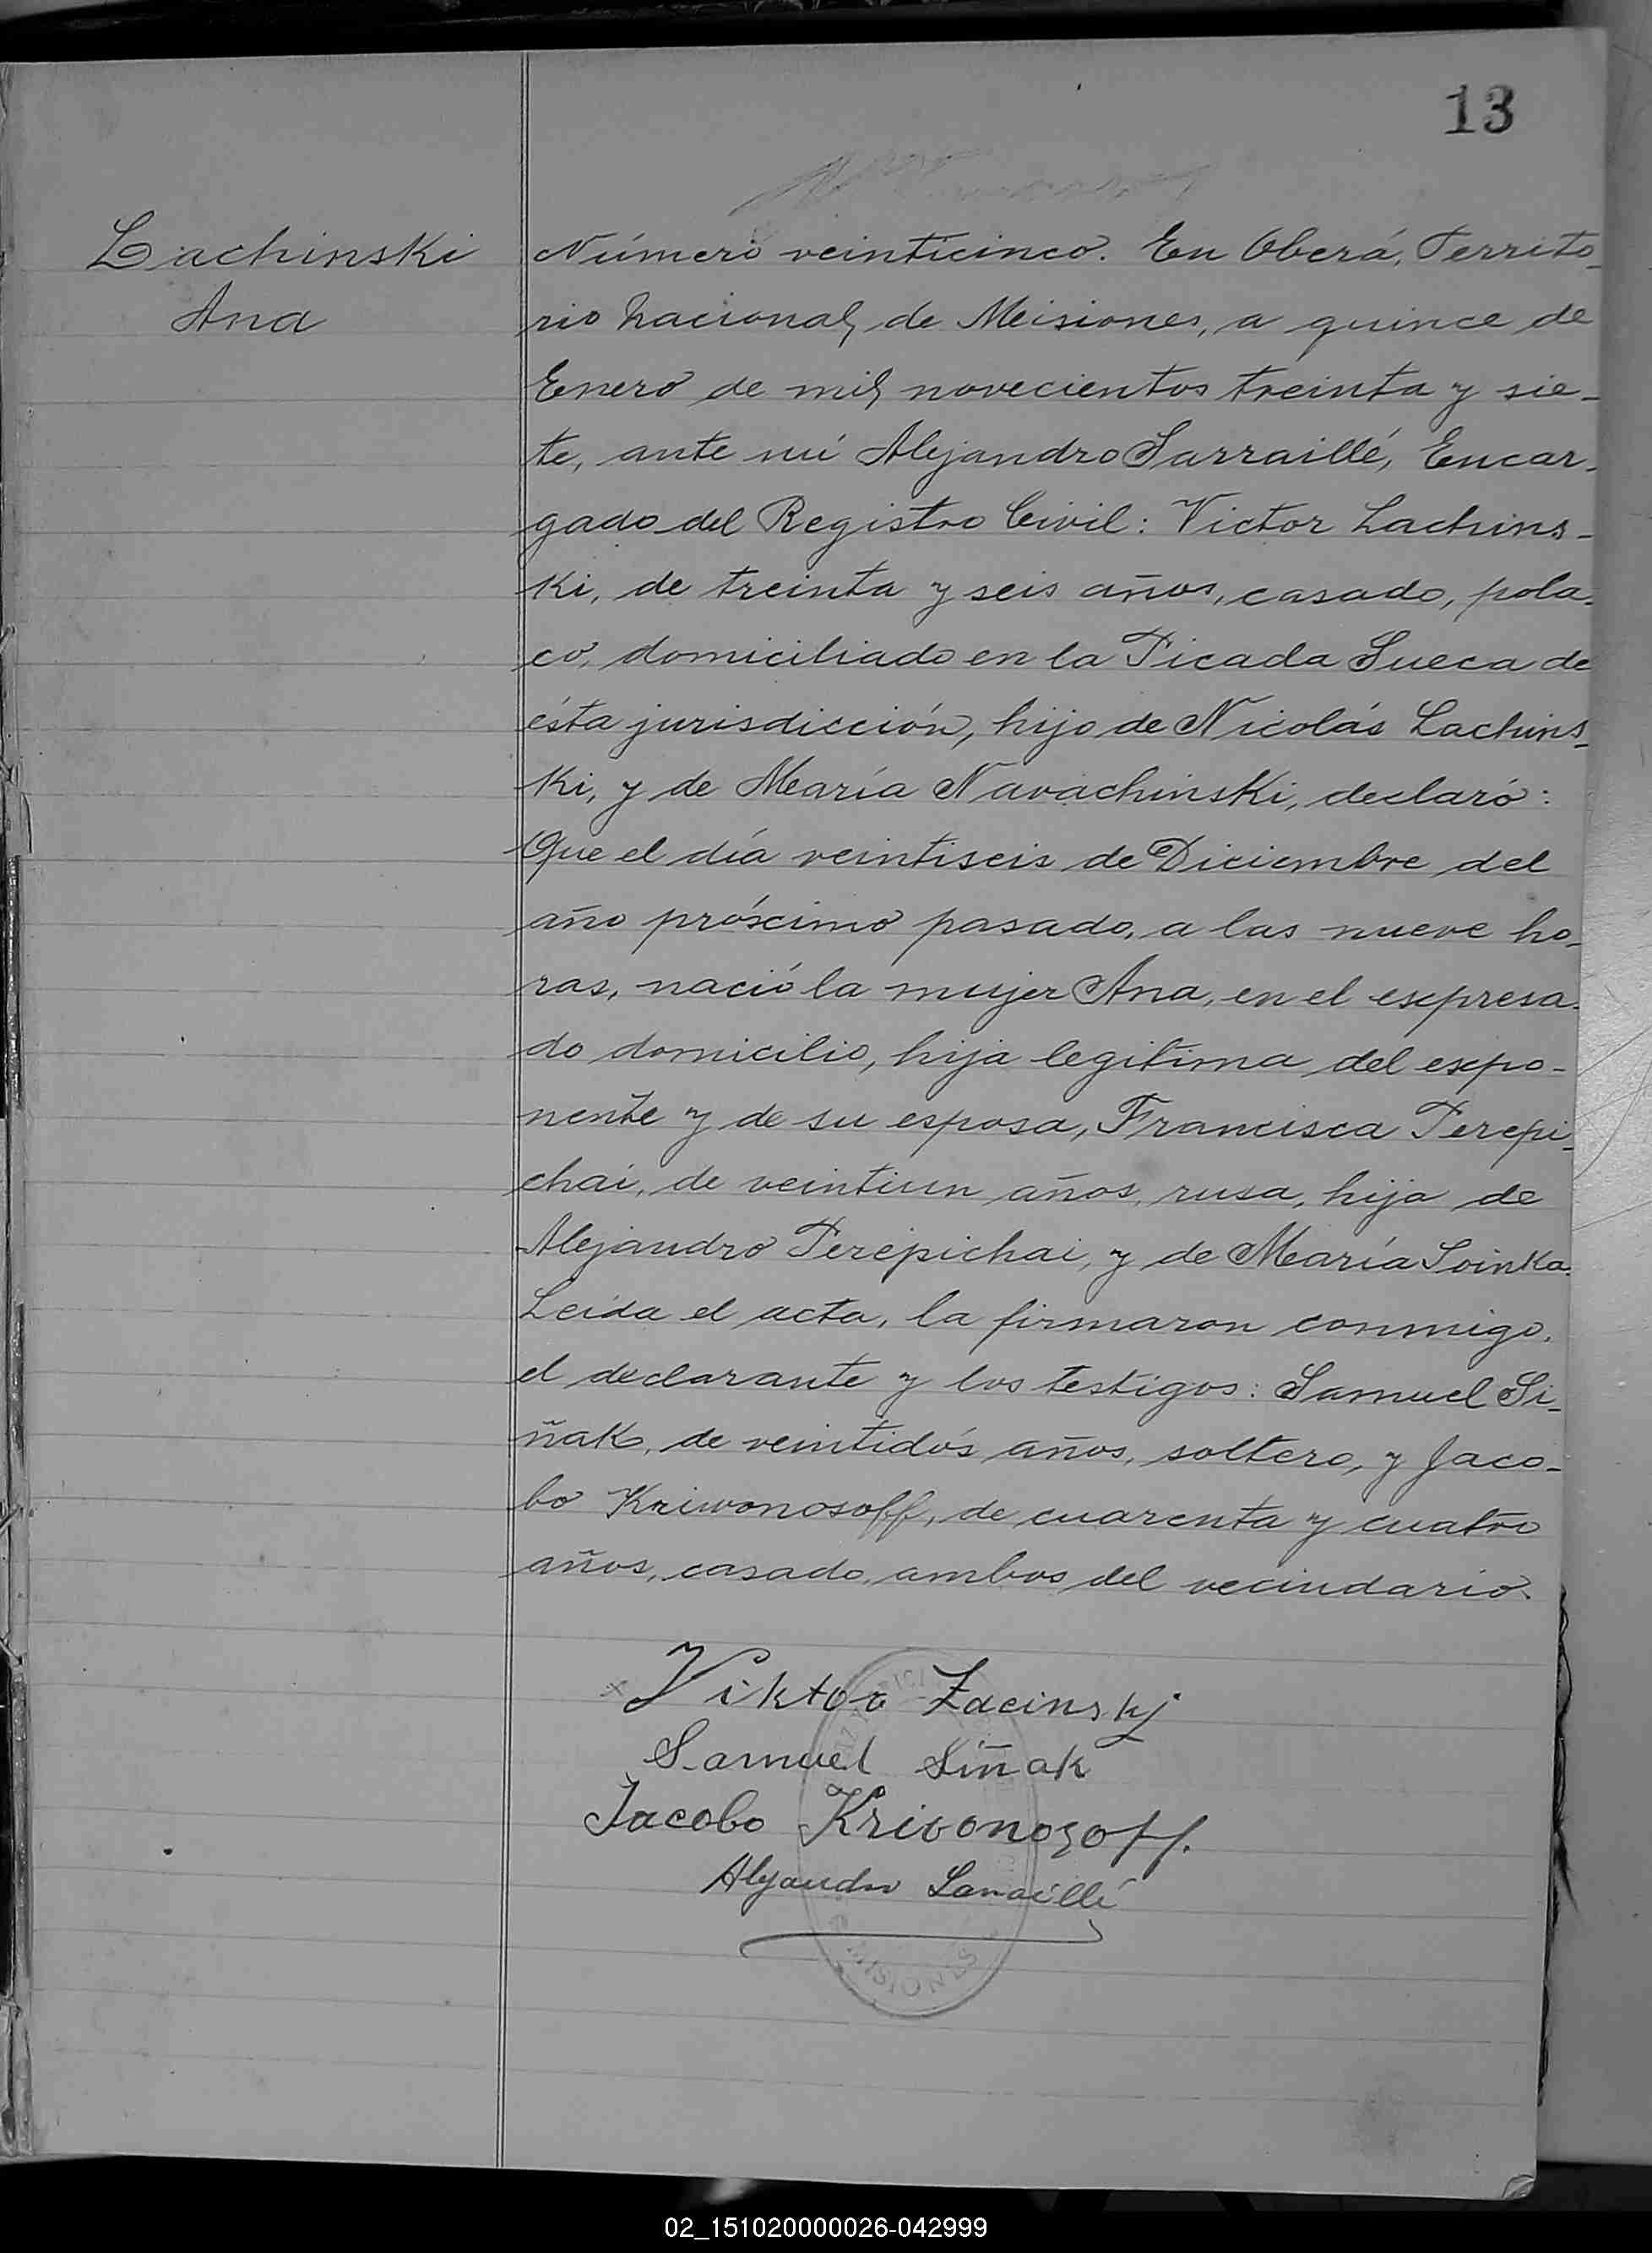 13
Lachinski
Ana
Número veinticinco. En Oberá, Territo-
rio Nacional, de Misiones, a quince de
Enero de mil novecientos treinta y sie-
te, ante mí Alejandro Sarraillé, Encar-
gado del Registro Civil: Victor Lachins-
ki, de treinta y seis años, casado, pola-
co, domiciliado en la Picada Sueca de
ésta jurisdicción, hijo de Nicolás Lachins-
ki, y de María Navachinski, declaró:
Que el día veintiseis de Diciembre del
año próximo pasado, a las nueve ho-
ras, nació la mujer Ana, en el expresa-
do domicilio, hija legítima del expo-
nente y de su esposa, Francisca Terepi-
chai, de veintiun años, rusa, hija de
Alejandro Terepichai, y de María Soinka.
Leída el acta, la firmaron conmigo,
el declarante y los testigos: Samuel Si-
ñak, de veintidós años, soltero, y Jaco-
bo Kriwonosoff, de cuarenta y cuatro
años, casado, ambos del vecindario.
x Viktor Łacinskj
Samuel Siñak
Jacobo Krivonozoff.
Alejandro Sarraillé
MISIONES
02_151020000026-042999